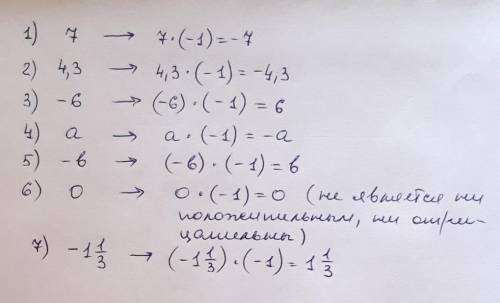 1) 7 → 7·(-1)=-7
2) 4,3 → 4,3·(-1)=-4,3
3) -6 → (-6)·(-1)=6
4) a → a·(-1)=-a
5) -в → (-в)·(-1)=в
6) 0 → 0·(-1)=0 (не является ни
положительным, ни отри-
цательны)
7) -1 1/3 → (-1 1/3)·(-1)=1 1/3